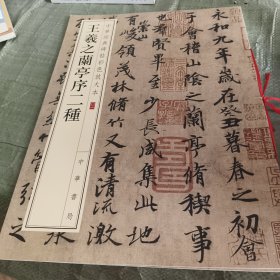 永和九年歲在癸丑暮春之初會
于會稽山陰之蘭亭脩稧事
賢畢至少長咸集此地
有峻領茂林脩竹又有清流激
中華經典碑帖彩色放大本
王羲之蘭亭序二種
中華書局